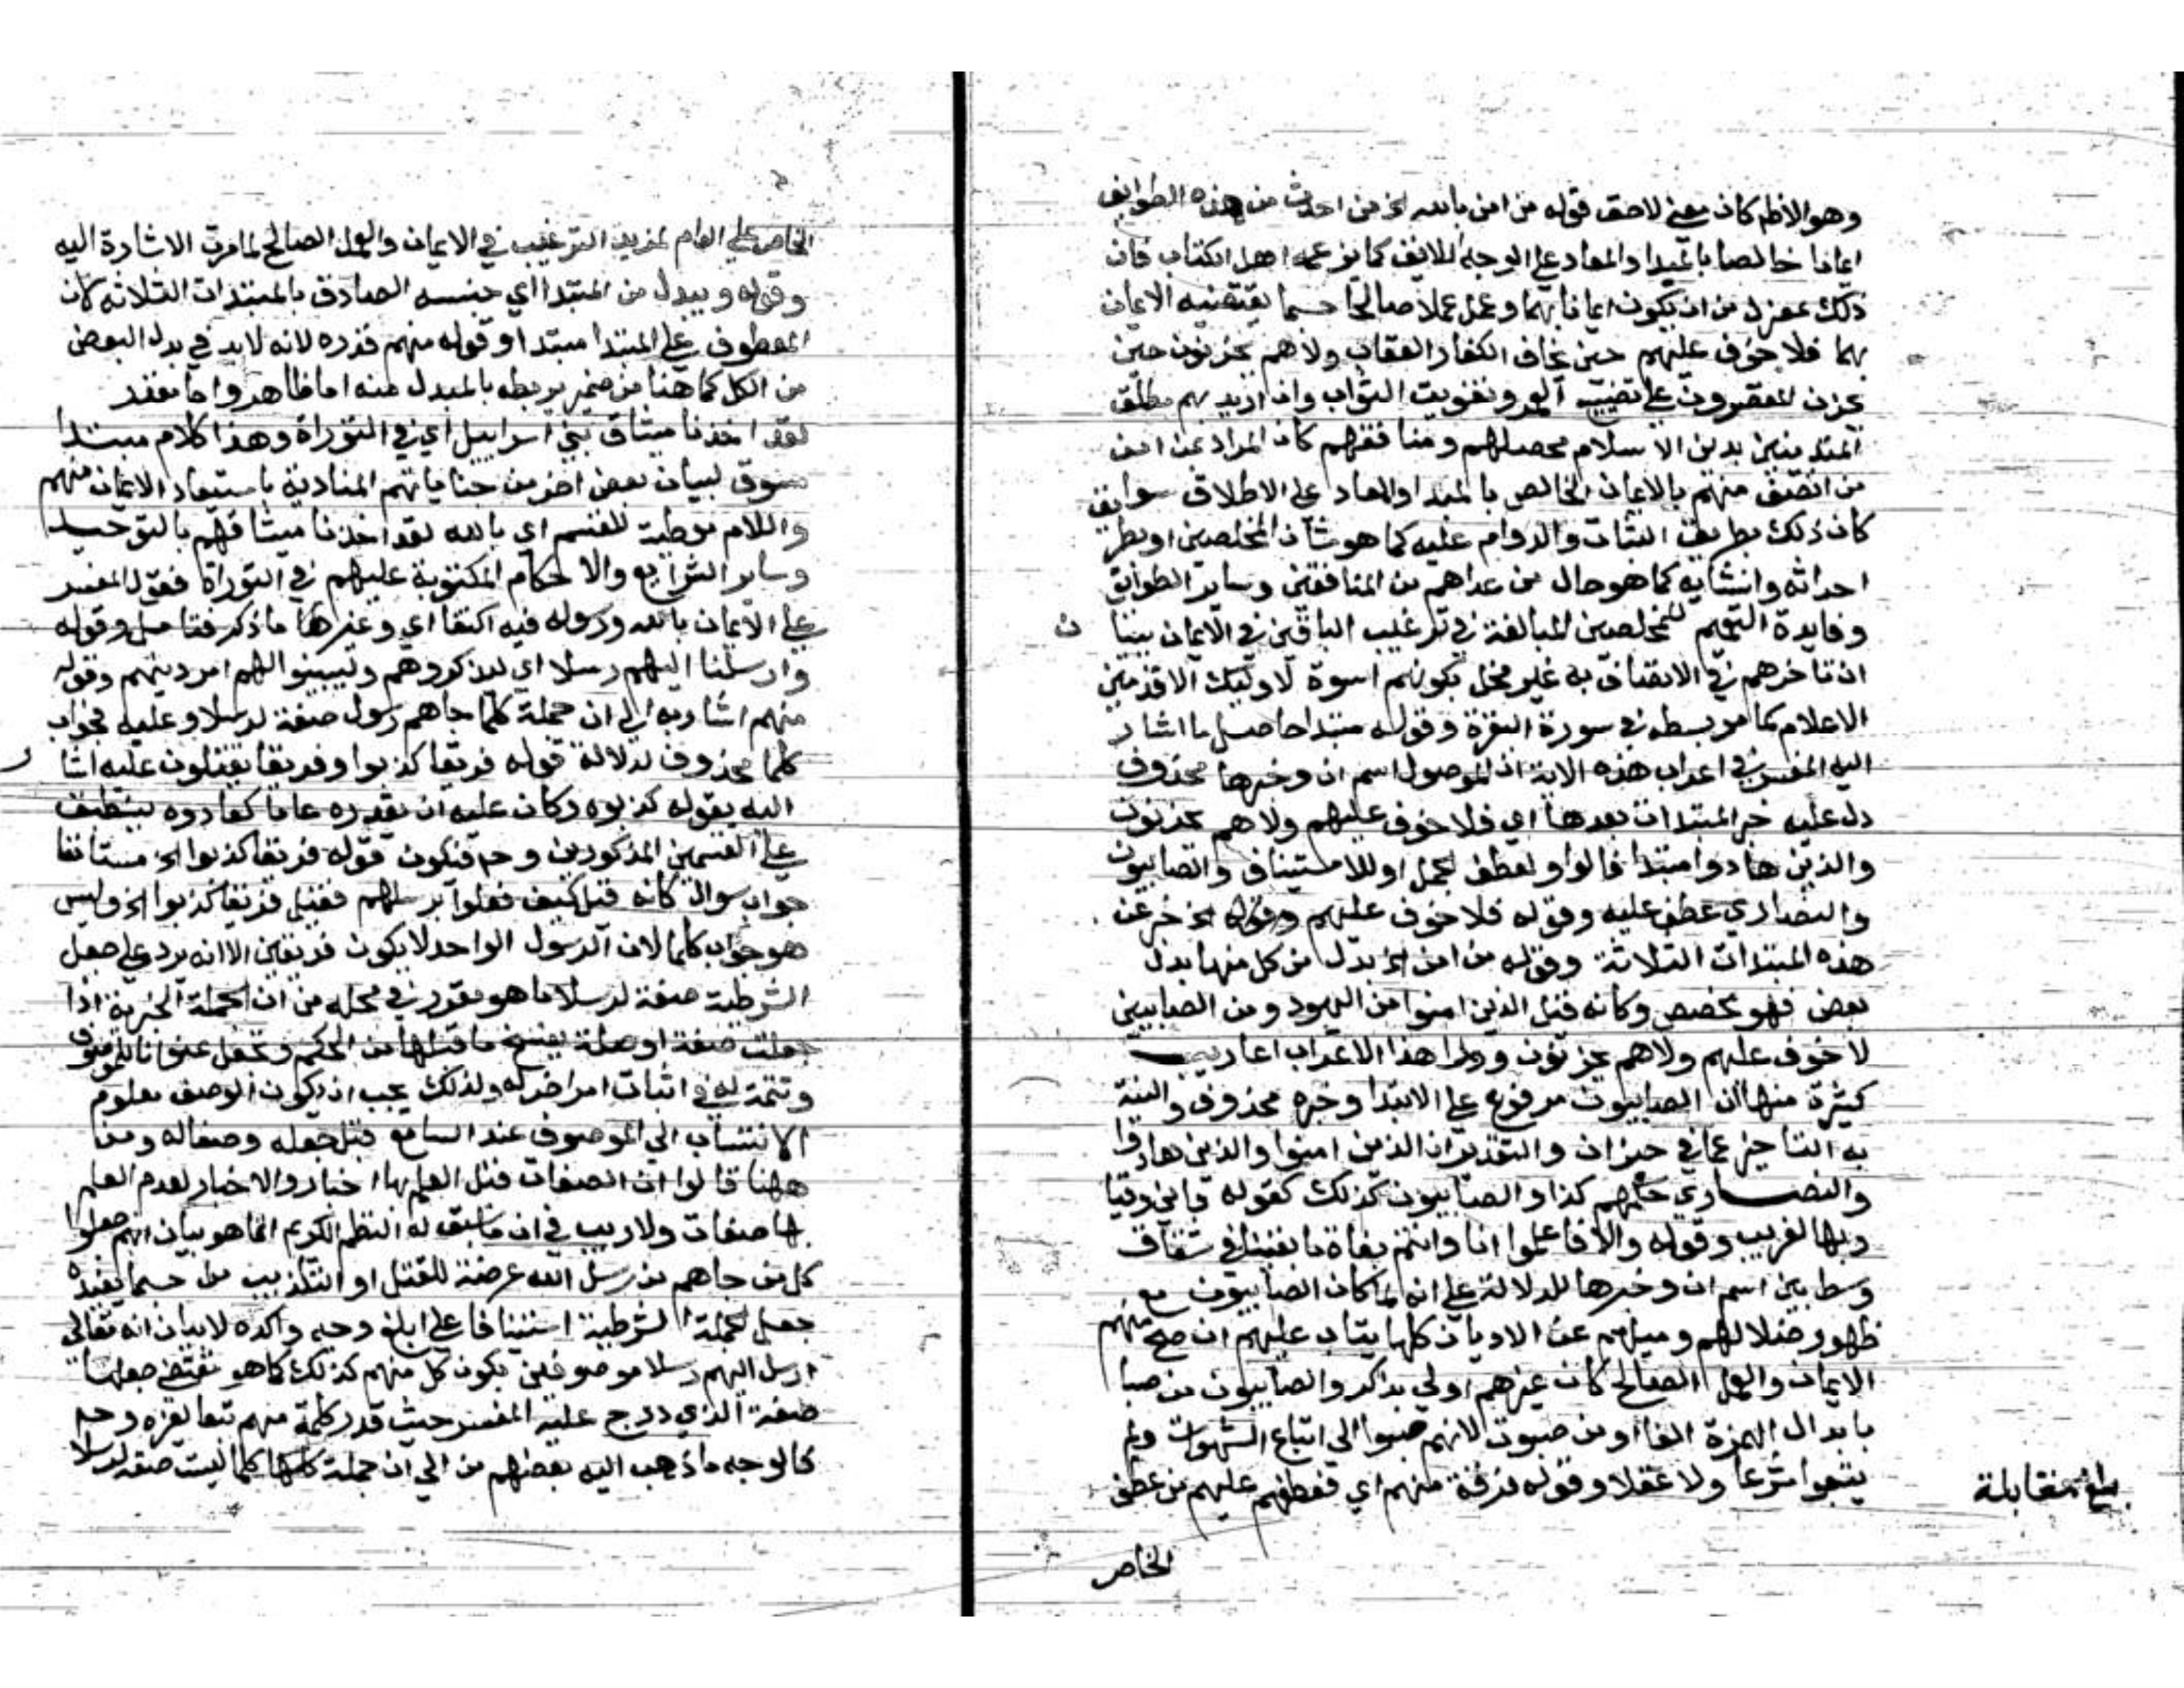 وهو الاظهر كان معنى لاحق قوله من امن بالله الخ من احدث من هذه الطوايف
ايمانا خالصا بالمبدا والمعاد على الوجه اللايق كما يزعمه اهل الكتاب فان
ذلك بمعزل من ان يكون ايمانا بهما وعمل عملا صالحا حسبما يقتضيه الايمان
بهما فلا خوف عليهم حين يخاف الكفار العقاب ولا هم يحزنون حين
يحزن المقصرون على تضييع العمر وتفويت الثواب وان اريد بهم مطلق
المتدينين بدين الاسلام محصلهم ومنافقهم كان المراد عن امن
من اتصف منهم بالايمان الخالص بالمبدا والمعاد على الاطلاق سوا
كان ذلك بطريق الثبات والدوام عليه كما هو شان المخلصين او بطر
احداثه وانشايه كما هو حال من عداهم من المنافقين وساير الطوايق
وفايدة التعميم للمخلصين المبالغة في ترغيب الباقين في الايمان ببيا ن
ان تاخرهم في الاتصاف به غير مخل بكونهم اسوة لاوليك الاقدمين
الاعلام كما مر بسطه في سورة البقرة وقوله مبتدا حاصل ما اشار
اليه المفسر في اعراب هذه الاية ان الموصول اسم ان وخبرها محذوف
دل عليه خبر المبتدات بعدها اي فلا خوف عليهم ولا هم يحزنون
والذين هادوا مبتدا فالواو لعطف الجمل او للاستيناف والصابيون
والنصاري عطف عليه وقوله فلا خوف عليهم وقوله الخ خبر عن
هذه المبتدات الثلاثة وقوله من امن الخ بدل من كل منها بدل
بعض فهو مخصص وكانه قيل الذين امنوا من اليهود ومن الصابيين
لا خوف عليهم ولا هم يحزنون وورا هذا الاعراب اعاريب
كثيرة منها ان الصابيون مرفوع على الابتدا وخبره محذوف والنية
به التاخير عما في حيز ان والتقدير ان الذين امنوا والذين هادوا
والنصاري حكمهم كذا والصابيون كذلك كقوله فاني وقيا
ر بها لغريب وقوله والا فاعلموا انا وانتم بغاة ما بقينا في شقاق
وسط بين اسم ان وخبرها للدلالة على انه لما كان الصابيون مع
ظهور ضلالهم وميلهم عن الاديان كلها يتاب عليهم ان صح منهم
الايمان والعمل الصالح كان غيرهم اولي بذاكر والصابيون من صبا
بابدال الهمزة الفا او من صبوت لانهم صبوا الي اتباع الشهوات ولم
يتبعوا شرعا ولا عقلا وقوله فرقة منهم اي فعطفهم عليهم من عطف
بلغ مقابلة
الخاص
الخاص على العام لمزيد الترغيب في الايمان والعمل الصالح لما مرت الاشارة اليه
وقوله ويبدل من المبتدا اي جنسه الصادق بالمبتدات الثلاثه كان
المعطوف على المبتدا مبتدا وقوله منهم قدره لانه لابد في بدل البعض
من الكل كما هنا من ضمير يربطه بالمبدل منه اما ظاهر واما مقدر
لقد اخذنا ميثاق بني اسراييل اي في التوراة وهذا كلام مبتدا
مسوق لبيان بعض اخر من جناياتهم المنادية باستبعاد الايمان منهم
واللام موطية للقسم اي بالله لقد اخذنا ميثاقهم بالتوحيد
وساير الشرايع والاحكام المكتوبة عليهم في التوراة فقول المفسر
على الايمان بالله ورسوله فيه اكتفا اي وغيرها ما ذكر فتامل وقوله
وارسلنا اليهم رسلا اي ليذكروهم وليبينوا لهم امر دينهم وقوله
منهم اشار به الى ان جملة كلما جاهم رسول صفة لرسلا وعليه فجواب
كلما محذوف لدلالة قوله فريقا كذبوا وفريقا يقتلون عليه اشا ر
اليه بقوله كذبوه وكان عليه ان يقدره عاما كعادوه لينطبق
على القسمين المذكورين وح فيكون قوله فريقا كذبوا الخ مستانفا
جواب سوال كانه قيل كيف فعلوا برسلهم فقيل فريقا كذبوا الخ وليس
هو جواب كلما لان الرسول الواحد لا يكون فريقين الا انه يرد على جعل
الشرطية صفة لرسلا ما هو مقرر في محله من ان الجملة الخبرية اذا
جعلت صفة او صلة ينسخ ما قبلها من الحكم وتجعل عنوانا للموصوف
وتتمة له في اثبات امر اخر له ولذلك يجب ان يكون الوصف معلوم
الانتساب الي الموصوف عند السامع قبل جعله وصفا له ومن
ههنا قالوا ان الصفات قبل العلم بها اخبار والاخبار بعد العلم
بها صفات ولا ريب في ان ما سيق له النظم الكريم انما هو بيان انهم جعلوا
كل من جاهم من رسل الله عرضة للقتل او التكذيب حسبما يفيده
جعل الجملة الشرطية استينافا على ابلغ وجه واكده لا بيان انه تعالى
ارسل اليهم رسلا موصوفين بكون كل منهم كذلك كما هو مقتضي جعلها
صفة الذي درج عليه المفسر حيث قدر كلمة منهم تبعا لغيره وح
فالوجه ما ذهب اليه بعضهم من الي ان جملة كلما ليست صفه لرسلا